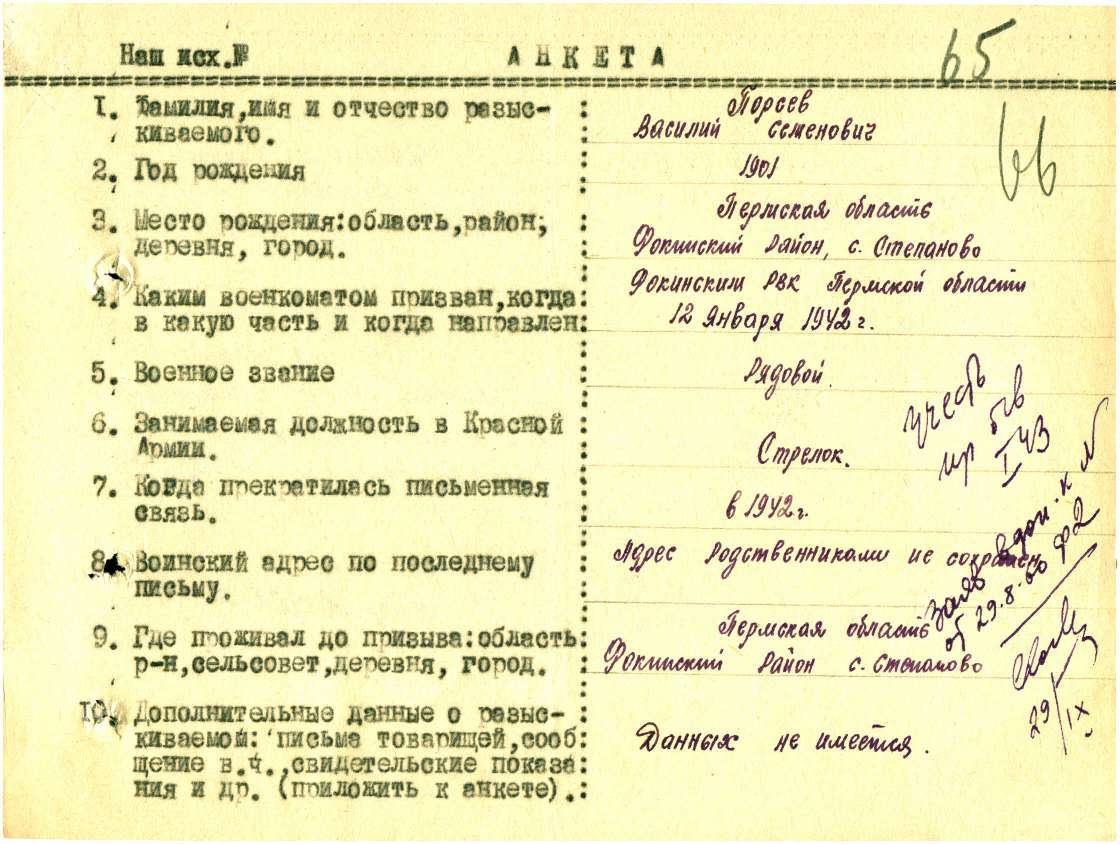 Наш исх.№ АНКЕТА 65
66
1. Фамилия,имя и отчество разыс- : Порсев
киваемого. : Василий Семенович
2. Год рождения : 1901
3. Место рождения:область,район, : Пермская область
деревня, город. : Фокинский Район, с. Степаново
4. Каким военкоматом призван,когда: Фокинским РВК Пермской области
в какую часть и когда направлен: 12 Января 1942 г.
5. Военное звание : Рядовой.
6. Занимаемая должность в Красной :
Армии. : Стрелок.
7. Когда прекратилась письменная :
связь. : в 1942 г.
8. Воинский адрес по последнему : Адрес Родственниками не сохранен
письму. :
9. Где проживал до призыва:область: Пермская область
р-н,сельсовет,деревня, город. : Фокинский Район с. Степаново
10. Дополнительные данные о разыс- :
киваемом: письма товарищей,сооб: Данных не имеется.
щение в.ч.,свидетельские показа:
ния и др. (приложить к анкете).:
учесть
пр б/в
I 43
от 29.8.60
29/IX